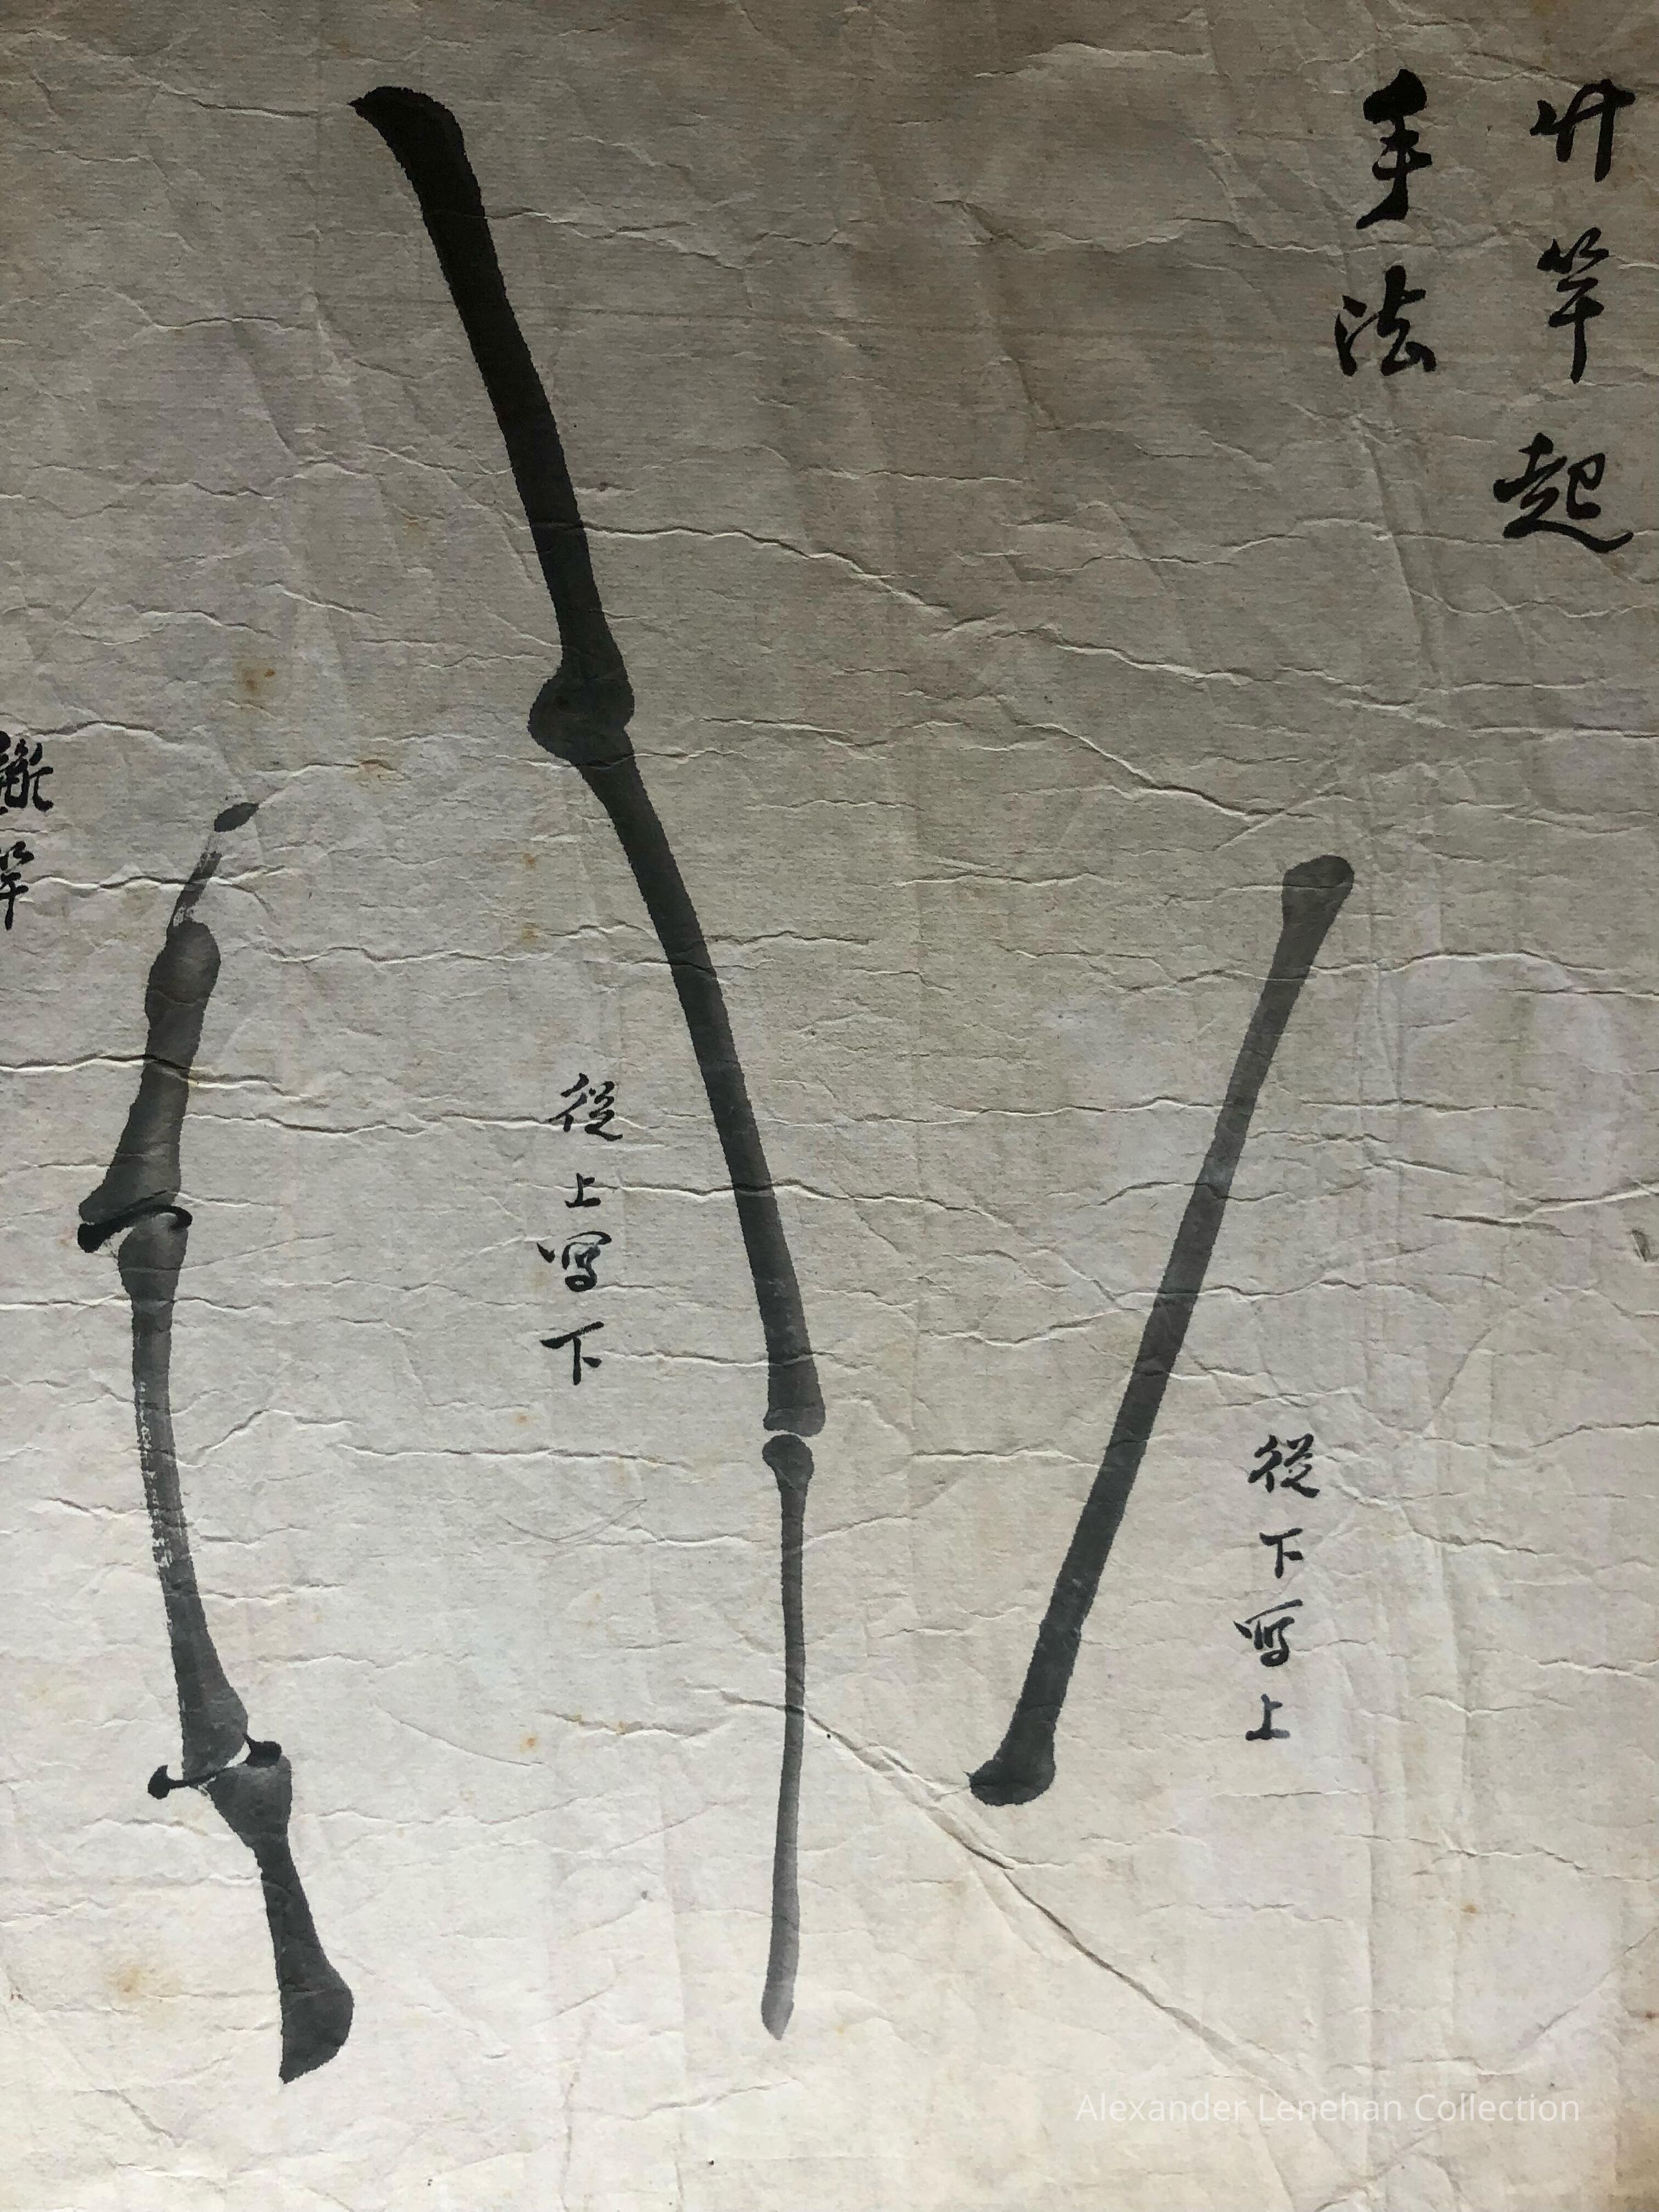 竹竿起
手法
從下写上
從上写下
竿
Alexander Lenehan Collection